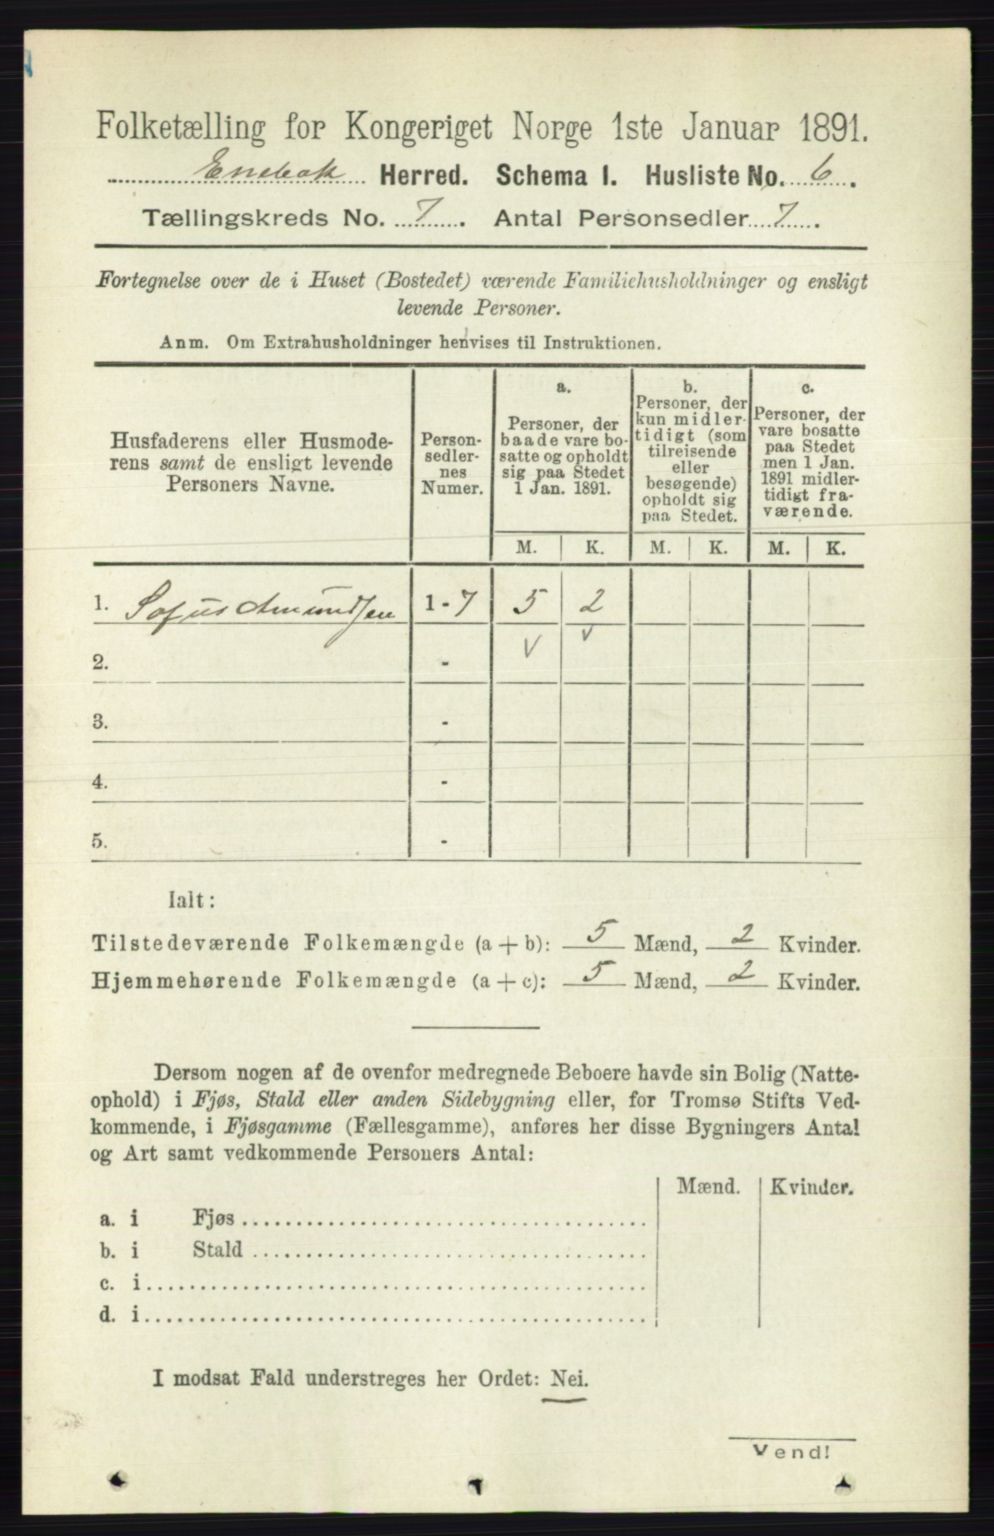 Folketælling for Kongeriget Norge 1ste Januar 1891.
Enebak Herred. Schema I. Husliste No. 6.
Tællingskreds No. 7. Antal Personsedler 7.
Fortegnelse over de i Huset (Bostedet) værende Familiehusholdninger og ensligt
levende Personer.
Anm. Om Extrahusholdninger henvises til Instruktionen.
Husfaderens eller Husmode-
rens samt de ensligt levende
Personers Navne.
Person-
sedler-
nes
Numer.
a.
Personer, der
baade vare bo-
satte og opholdt
sig paa Stedet
1 Jan. 1891.
b.
Personer, der
kun midler-
tidigt (som
tilreisende
eller
besøgende)
opholdt sig
paa Stedet.
c.
Personer, der
vare bosatte
paa Stedet
men 1 Jan.
1891 midler-
tidigt fra-
værende.
M. K. M. K. M. K.
1. Sofus Amundsen 1-7 5 2
2. - v v
3. -
4. -
5. -
Ialt:
Tilstedeværende Folkemængde (a + b): 5 Mænd, 2 Kvinder.
Hjemmehørende Folkemængde (a + c): 5 Mænd, 2 Kvinder.
Dersom nogen af de ovenfor medregnede Beboere havde sin Bolig (Natte-
ophold) i Fjøs, Stald eller anden Sidebygning eller, for Tromsø Stifts Ved-
kommende, i Fjøsgamme (Fællesgamme), anføres her disse Bygningers Antal
og Art samt vedkommende Personers Antal:
Mænd. Kvinder.
a. i Fjøs
b. i Stald
c. i
d. i
I modsat Fald understreges her Ordet: Nei.
Vend!